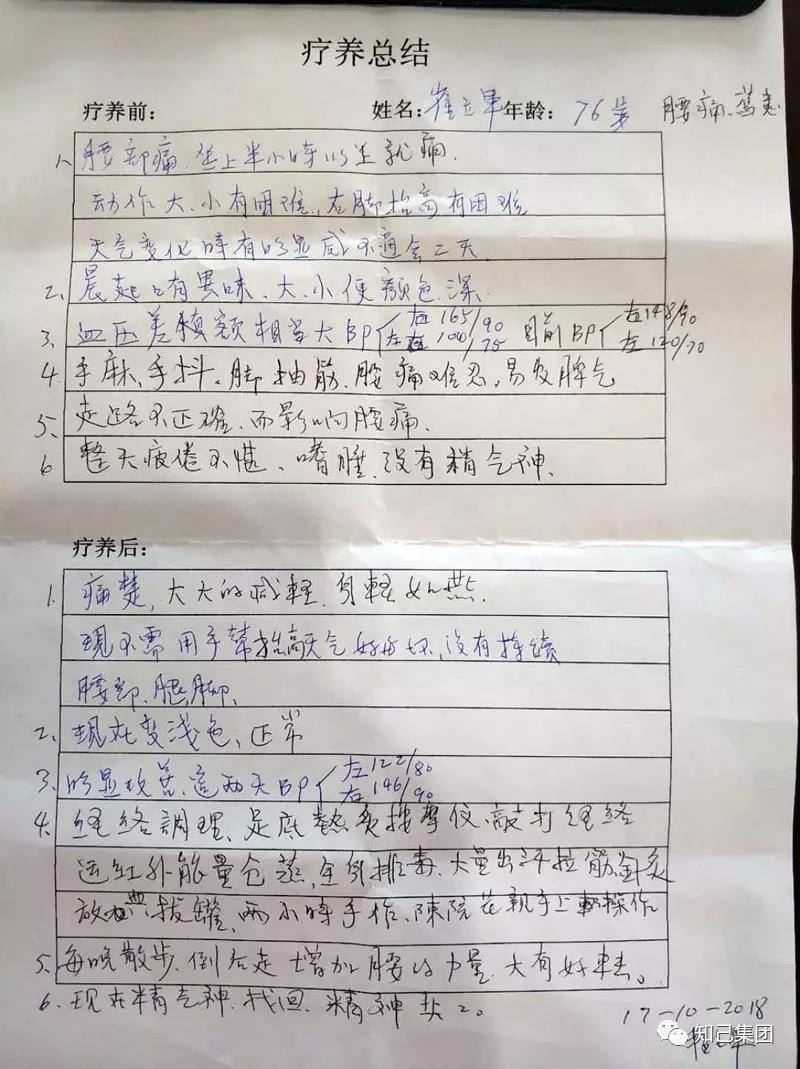 疗养总结
疗养前: 姓名: 年龄: 76岁 腰痛、
1、腰部痛、坐上半小时以上就痛.
动作大、小有困难、右脚抬高有困难
天气变化時有明显感不適会二天
2、晨起口有異味、大、小便顏色深.
3、血压差額相当大BP 右165/90 左100/75 目前BP 右148/90 左120/70
4、手麻、手抖、脚抽筋、腰痛难忍,易发脾气
5、走路不正確、而影响腰痛.
6 整天疲倦不堪、嗜睡、没有精气神、
疗养后:
1、痛楚,大大的减輕、身輕如燕.
現不需用手幫抬高天气好好坏,没有持续
腰部、腿脚、
2、現在变浅色、正常
3、明显改善、這两天BP 左122/80 右146/90
4、经络調理、足底熱灸按摩仪、敲打经络
远红外能量仓蒸,全身排毒、大量出汗拉筋、針灸
放血、拔罐、两小時手作、陳院 親手上操作
5、每晚散步、倒后走增加腰的力量、大有好转。
6、现在精气神找回、精神
17-10-2018
知己集团